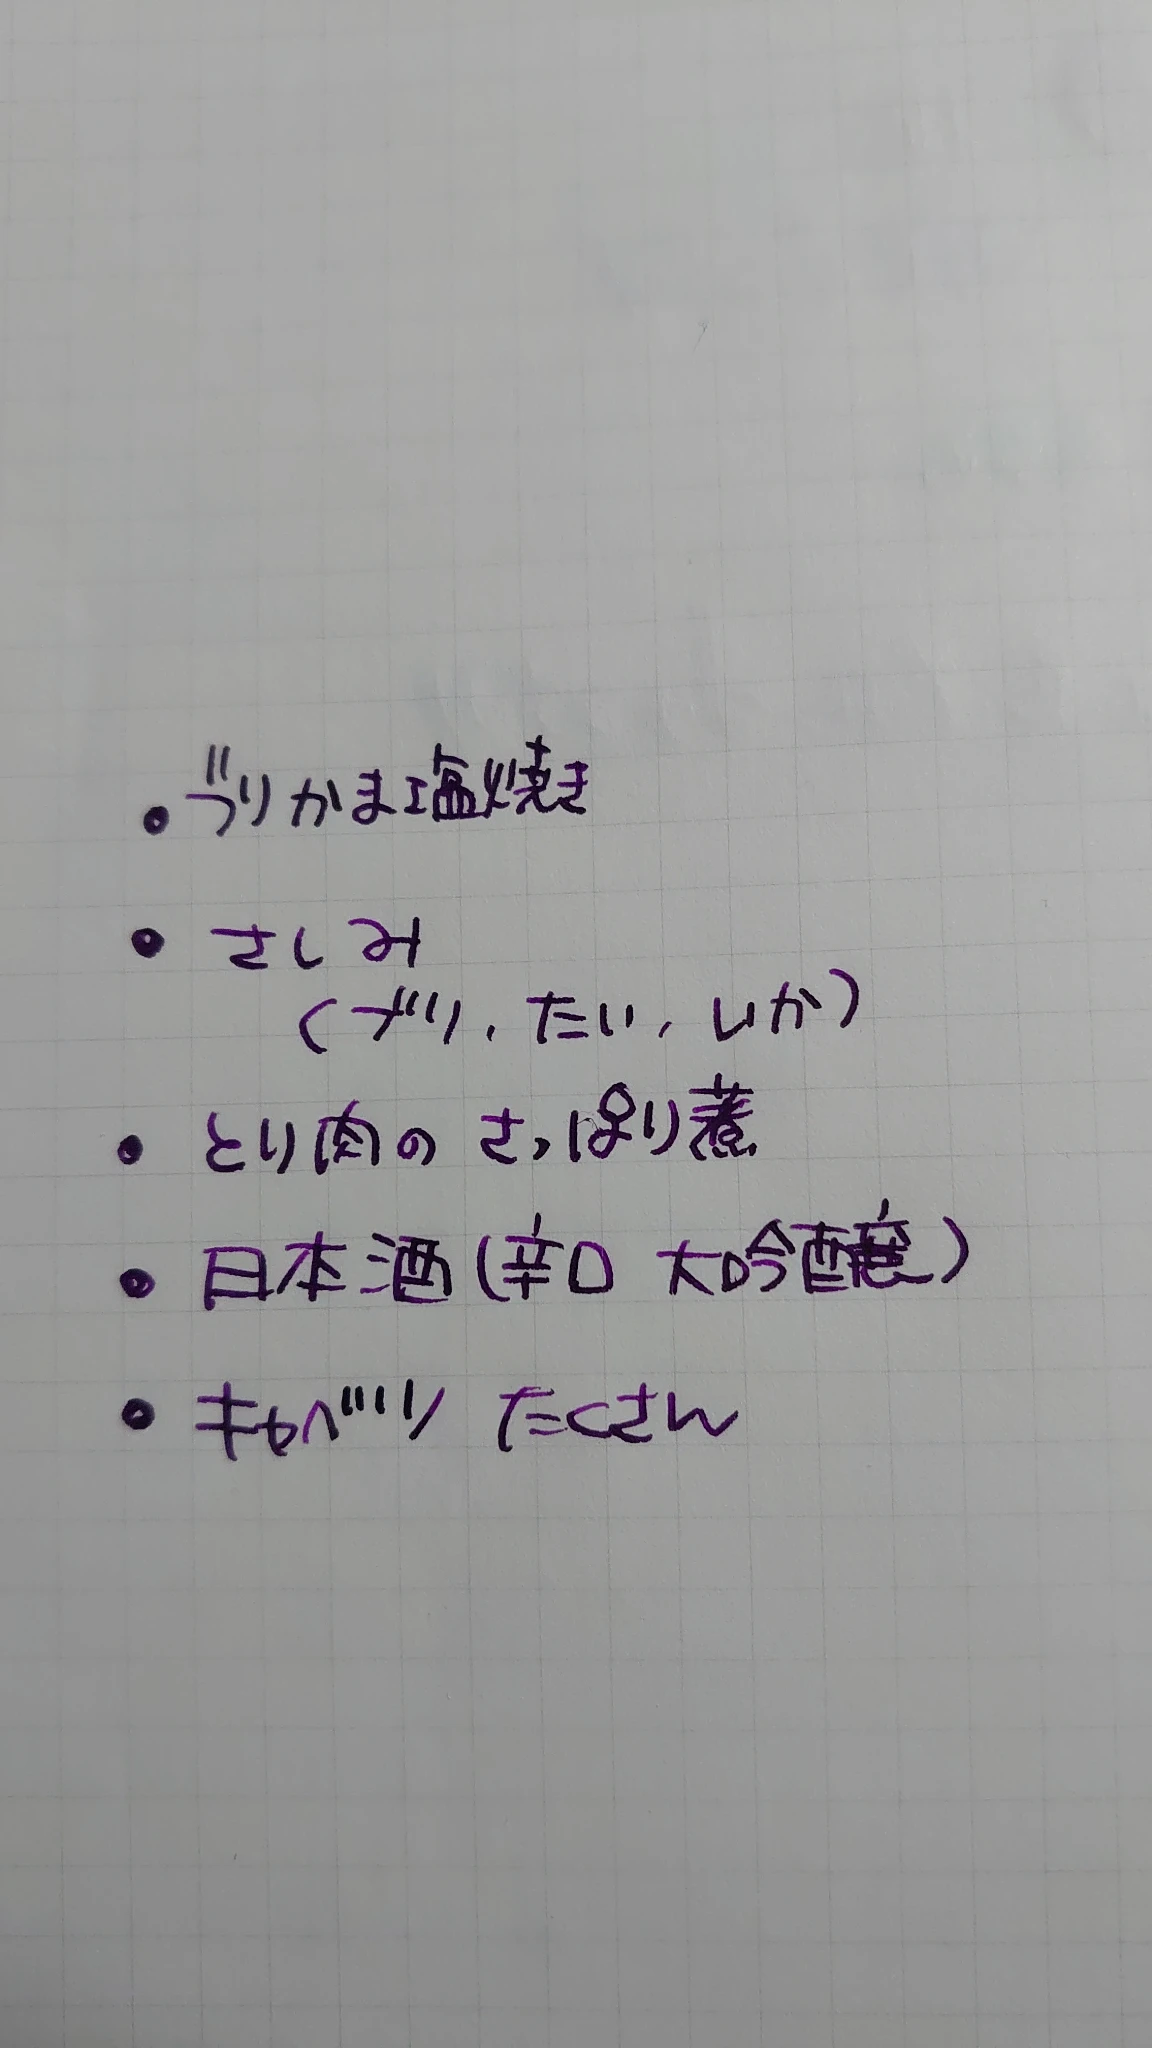 • ブリかま塩焼き
• さしみ
(ブリ、たい、いか)
• とり肉のさっぱり煮
• 日本酒(辛口 大吟醸)
• キャベツ たくさん